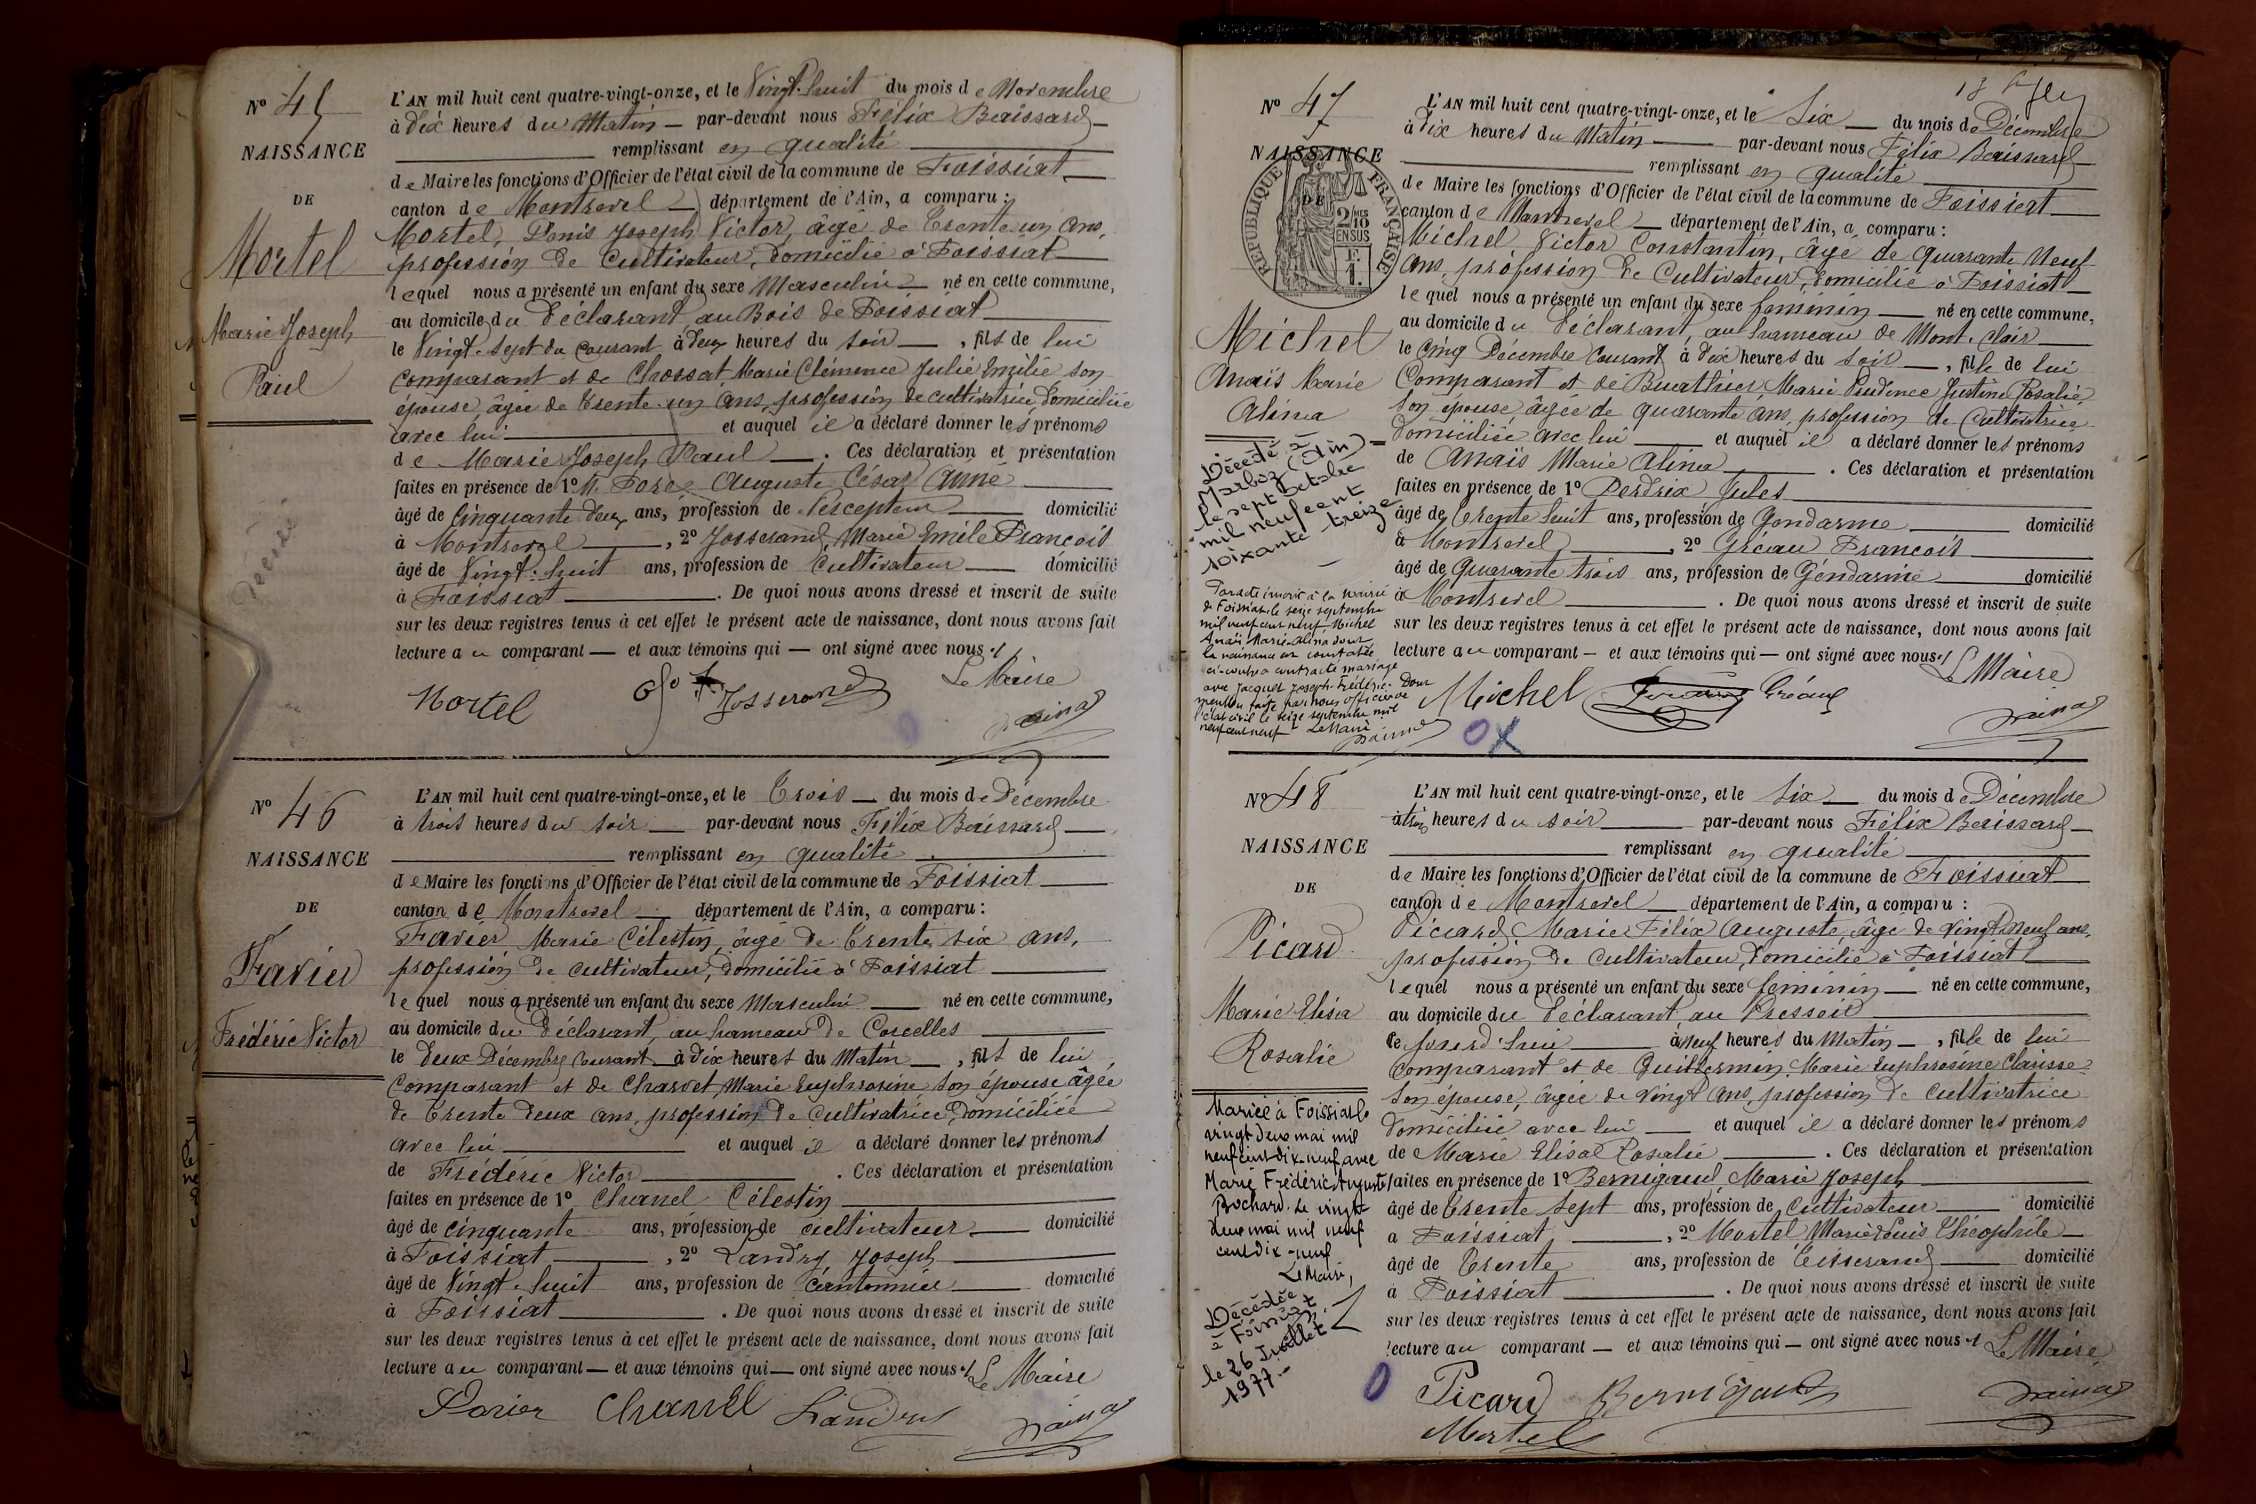 N° 45
NAISSANCE
DE
Mortel
Marie Joseph
Paul
L'AN mil huit cent quatre-vingt-onze, et le Vingt-huit du mois de Novembre
à dix heures du Matin par-devant nous Félix Baissard
remplissant en qualité
de Maire les fonctions d'Officier de l'état civil de la commune de Foissiat
canton de Montrevel département de l'Ain, a comparu :
Mortel, Denis Joseph Victor, âgé de trente un ans,
profession de Cultivateur, domicilié à Foissiat
lequel nous a présenté un enfant du sexe Masculin né en cette commune,
au domicile du déclarant au Bois de Foissiat
le Vingt-sept du courant à deux heures du soir, fils de lui
comparant et de Chossat, Marie Clémence Julie Emélie son
épouse, âgée de trente un ans, profession de cultivatrice domiciliée
avec lui et auquel il a déclaré donner les prénoms
de Marie Joseph Paul. Ces déclaration et présentation
faites en présence de 1° M. Auguste César Anné
âgé de Cinquante deux ans, profession de Percepteur domicilié
à Montrevel, 2° Josserand, Marie Emile François
âgé de Vingt-huit ans, profession de Cultivateur domicilié
à Foissiat. De quoi nous avons dressé et inscrit de suite
sur les deux registres tenus à cet effet le présent acte de naissance, dont nous avons fait
lecture au comparant et aux témoins qui ont signé avec nous
Le Maire
Mortel Josserand
N° 46
NAISSANCE
DE
Favier
Frédéric Victor
L'AN mil huit cent quatre-vingt-onze, et le Trois du mois de Décembre
à trois heures du soir par-devant nous Félix Baissard
remplissant en qualité
de Maire les fonctions d'Officier de l'état civil de la commune de Foissiat
canton de Montrevel département de l'Ain, a comparu :
Favier Marie Célestin, âgé de trente six ans,
profession de cultivateur, domicilié à Foissiat
lequel nous a présenté un enfant du sexe Masculin né en cette commune,
au domicile du déclarant, au hameau de Corcelles
le deux Décembre courant à dix heures du Matin, fils de lui
comparant et de Charvet, Marie Euphrosine son épouse âgée
de trente deux ans, profession de cultivatrice, domiciliée
avec lui et auquel il a déclaré donner les prénoms
de Frédéric Victor. Ces déclaration et présentation
faites en présence de 1° Chanel Célestin
âgé de cinquante ans, profession de cultivateur domicilié
à Foissiat, 2° Landry Joseph
âgé de Vingt-huit ans, profession de cantonnier domicilié
à Foissiat. De quoi nous avons dressé et inscrit de suite
sur les deux registres tenus à cet effet le présent acte de naissance, dont nous avons fait
lecture au comparant et aux témoins qui ont signé avec nous Le Maire
Favier Chanel Landry
N° 47
NAISSANCE
DE
REPUBLIQUE FRANÇAISE
2/10 EN SUS
Michel
Anaïs Marie
Alina
Décédé à
Marboz (Ain)
le sept octobre
mil neuf cent
soixante treize
Par acte inscrit à la mairie
de Foissiat le seize septembre
mil neuf cent neuf Michel
Anaïs Marie Alina dont
la naissance est constatée
ci-contre a contracté mariage
avec Jacquet Joseph Frédéric. Dont
mention faite par nous officier de
l'état civil le seize septembre mil
neuf cent neuf Le Maire
L'AN mil huit cent quatre-vingt-onze, et le Six du mois de Décembre
à dix heures du Matin par-devant nous Félix Baissard
remplissant en qualité
de Maire les fonctions d'Officier de l'état civil de la commune de Foissiat
canton de Montrevel département de l'Ain, a comparu :
Michel Victor Constantin, âgé de quarante Neuf
ans, profession de Cultivateur, domicilié à Foissiat
lequel nous a présenté un enfant du sexe féminin né en cette commune,
au domicile du déclarant, au hameau de Mont-clair
le cinq Décembre courant à dix heures du soir, fille de lui
Comparant et de Buathier, Marie Prudence Justine Rosalie
son épouse, âgée de quarante ans, profession de Cultivatrice
domiciliée avec lui et auquel il a déclaré donner les prénoms
de Anaïs Marie Alina. Ces déclaration et présentation
faites en présence de 1° Perdrix Jules
âgé de trente huit ans, profession de Gendarme domicilié
à Montrevel, 2° Gréau François
âgé de Quarante trois ans, profession de Gendarme domicilié
à Montrevel. De quoi nous avons dressé et inscrit de suite
sur les deux registres tenus à cet effet le présent acte de naissance, dont nous avons fait
lecture au comparant et aux témoins qui ont signé avec nous
Le Maire
Michel Gréau
N° 48
NAISSANCE
DE
Picard
Marie Elisa
Rosalie
Mariée à Foissiat le
vingt deux mai mil
neuf cent dix-neuf avec
Marie Frédéric Auguste
Bochard. Le vingt
deux mai mil neuf
cent dix-neuf
Le Maire,
Décédée
à Foissiat
le 26 Juillet
1977.-
L'AN mil huit cent quatre-vingt-onze, et le six du mois de Décembre
à trois heures du soir par-devant nous Félix Baissard
remplissant en qualité
de Maire les fonctions d'Officier de l'état civil de la commune de Foissiat
canton de Montrevel département de l'Ain, a comparu :
Picard, Marie Félix Auguste, âgé de vingt neuf ans,
profession de cultivateur, domicilié à Foissiat
lequel nous a présenté un enfant du sexe féminin né en cette commune,
au domicile du déclarant au Presseil
ce jourd'hui à neuf heures du Matin, fille de lui
comparant et de Guillermin, Marie Euphrosine Clarisse
son épouse, âgée de vingt ans, profession de cultivatrice
domiciliée avec lui et auquel il a déclaré donner les prénoms
de Marie Elisa Rosalie. Ces déclaration et présentation
faites en présence de 1° Bernigaud, Marie Joseph
âgé de trente sept ans, profession de Cultivateur domicilié
à Foissiat, 2° Mortel Marie Louis Théophile
âgé de trente ans, profession de Tisserand domicilié
à Foissiat. De quoi nous avons dressé et inscrit de suite
sur les deux registres tenus à cet effet le présent acte de naissance, dont nous avons fait
lecture au comparant et aux témoins qui ont signé avec nous Le Maire
Picard Bernigaud
Mortel